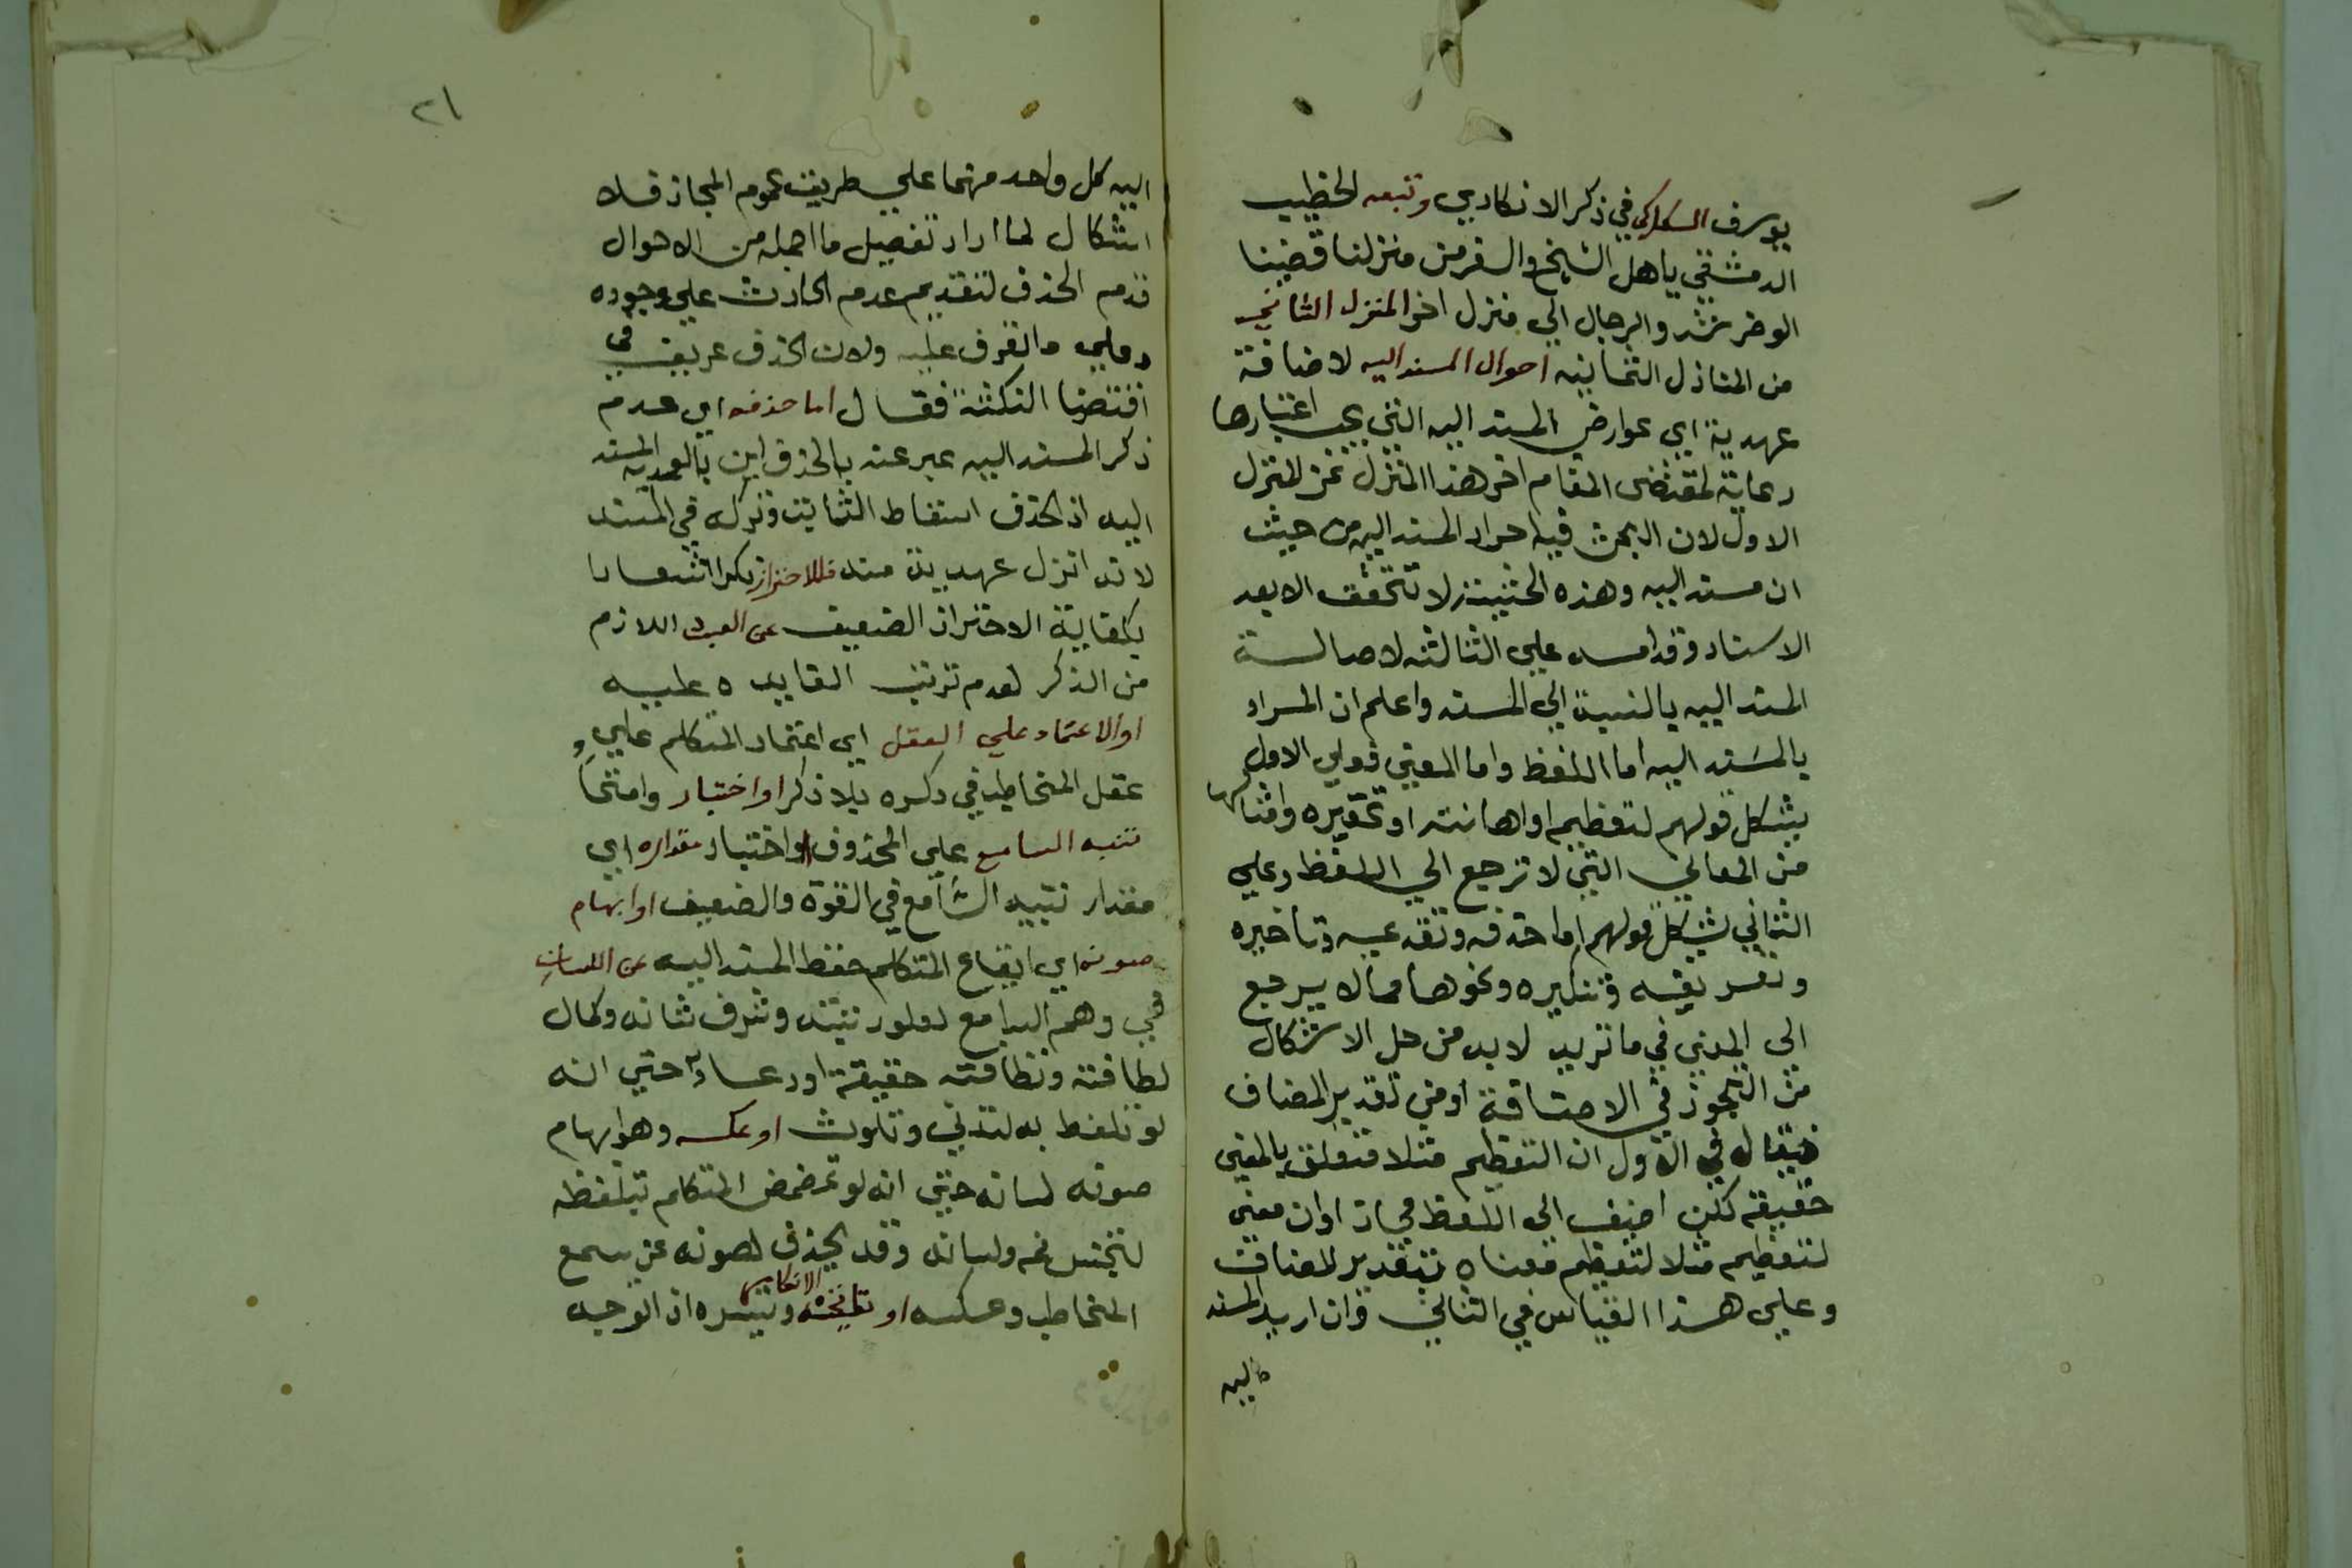 يوسف السكاكي في ذكر الانكاري وتبعه الخطيب
الدمشقي يا اهل الشيخ والسفر من منزلنا قضينا
الوطر نشد والرحال الي منزل اخر المنزل الثاني
من المنازل الثمانيه احوال المسند اليه لاضافة
عهدية اي عوارض المسند اليه التي يجب اعتبارها
رعاية لمقتضى المقام اخر هذا المنزل عن المنزل
الاول لان البحث فيه احوال المسند اليه من حيث
ان مسند اليه وهذه الحيثية لا تتحقق الا بعد
الاسناد وقدامه علي الثالثه لاصالة
المسند اليه بالنسبة الي المسند واعلم ان المراد
بالمسند اليه اما اللفظ واما المعني فعلي الاول
يشكل قولهم لتعظيمه او اهانته او تحقيره وامثالها
من المعاني التي لا ترجع الي اللفظ وعلي
الثاني يشكل قولهم اما حذفه وتقديمه وتاخيره
وتعريفه وتنكيره ونحوها مما لا يرجع
الي المعني في ما تريد لابد من حل الاشكال
من التجوز في الاضافة او من تقدير المضاف
فيقال في الاول ان التعظيم مثلا متعلق بالمعني
حقيقه لكن اضيف الي اللفظ مجاز او ان معني
لتعظيمه مثلا لتعظيم معناه بتقدير المضاف
وعلي هذا القياس في الثاني وان اريد المسند
اليه
٢١
اليه كل واحد منهما علي طريق عموم المجاز فلا
اشكال لما اراد تفصيل ما اجمله من الاحوال
قدم الحذف لتقديم عدم الحادث علي وجوده
ولان الحذف عريق في
اقتضا النكتة فقال اما حذفه اي عدم
ذكر المسند اليه عبر عنه بالحذف المسند
اليه اذ الحذف اسقاط الثابت وترك في المسند
لانه انزل عهدية منه فللاحتراز نكرا شعارا
بكفاية الاحتراز الضعيف عن العبث اللازم
من الذكر لعدم ترتب الفايده عليه
او الاعتماد علي العقل اي اعتماد المتكلم علي
عقل المخاطب في دكره بلا ذكر او اختبار وامتحا
تنبه السامع علي المحذوف او اختبار مقداره اي
مقدار تنبيه السامع في القوة والضعيف او ايهام
صونه اي ايقاع المتكلم حفظ المسند اليه عن اللسان
في وهم السامع لعلو رتبته وشرف شانه وكمال
لطافته ونظافته حقيقة او ادعاء حتي انه
لو تلفظ به لتدني وتلوث او عكسه وهو ايهام
صونه لسانه حتي انه لو تمضمض المتكلم تبلفظه
لتنجس فمه ولسانه وقد يحذف لصونه عن سمع
المخاطب وعكسه او الانكار وتيسره ان الوجه